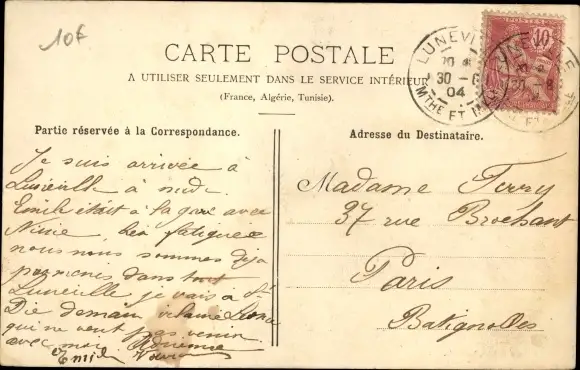 10f
CARTE POSTALE
A UTILISER SEULEMENT DANS LE SERVICE INTÉRIEUR
(France, Algérie, Tunisie).
POSTES
10
LUNEVI
30
04
MTHE ET M
Partie réservée à la Correspondance.
Je suis arrivée à
Lunéville à midi
Emile était à la gare avec
Ninie, très fatiguée
nous nous sommes déjà
dans tout
Lunéville je vais à St
Die demain
qui ne veut pas venir
avec moi
Emile
Adresse du Destinataire.
Madame Ferry
37 rue Brochant
Paris
Batignolles